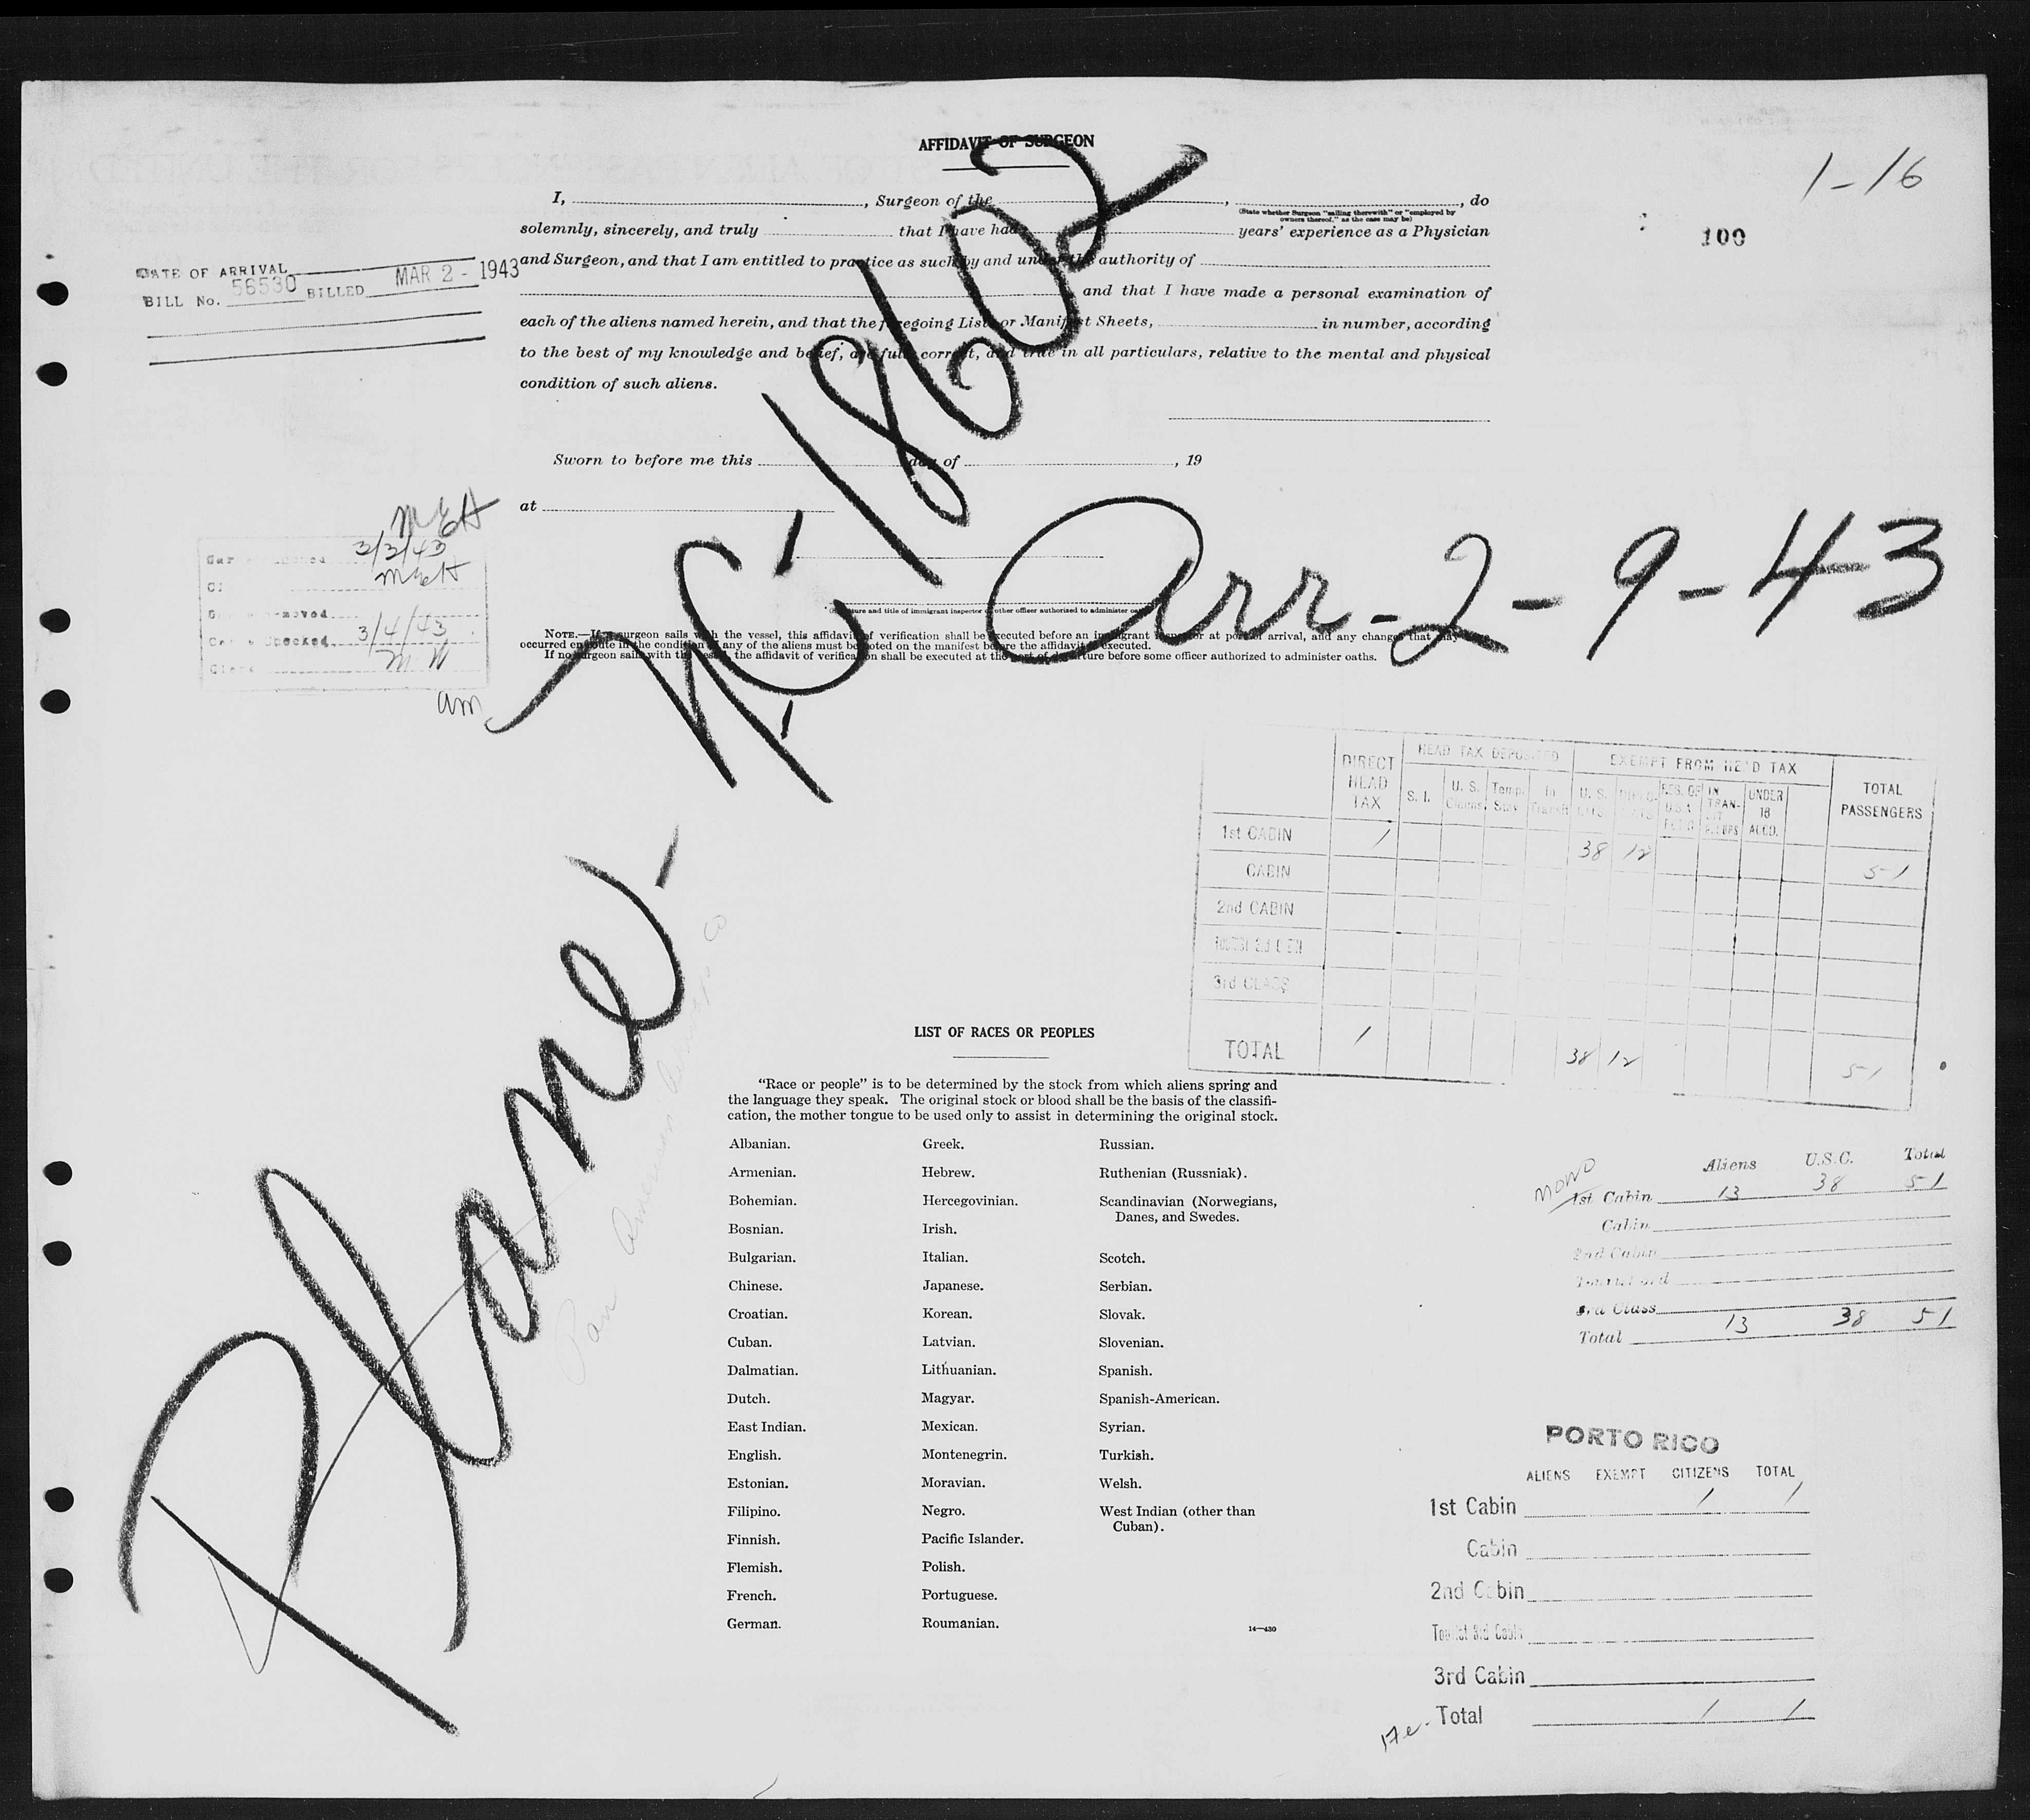 AFFIDAVIT OF SURGEON
1-16
100
I, , Surgeon of the , , do
(State whether Surgeon "sailing therewith" or "employed by
owners thereof," as the case may be)
solemnly, sincerely, and truly that I have had years' experience as a Physician
and Surgeon, and that I am entitled to practice as such by and under the authority of
and that I have made a personal examination of
each of the aliens named herein, and that the foregoing List or Manifest Sheets, in number, according
to the best of my knowledge and belief, are full, correct, and true in all particulars, relative to the mental and physical
condition of such aliens.
DATE OF ARRIVAL
BILL No. 56530 BILLED MAR 2 - 1943
Sworn to before me this day of , 19
at
3/3/43
Checked 3/4/43
am
Plane - NC-18602
Arr-2-9-43
(Signature and title of immigrant inspector or other officer authorized to administer oaths)
NOTE.—If a surgeon sails with the vessel, this affidavit of verification shall be executed before an immigrant inspector at port of arrival, and any changes that may
occurred en route in the condition of any of the aliens must be noted on the manifest before the affidavit is executed.
If no surgeon sails with the vessel, the affidavit of verification shall be executed at the port of departure before some officer authorized to administer oaths.
Pan American Airways Co
HEAD TAX DEPOSITED EXEMPT FROM HEAD TAX
DIRECT HEAD TAX S. I. U. S. Claims Temp. Stay In Transit U. S. IN TRANSIT UNDER 16 ACCD. TOTAL PASSENGERS
1st CABIN 1 38 12 51
CABIN
2nd CABIN
3rd CLASS
TOTAL 1 38 12 51
LIST OF RACES OR PEOPLES
"Race or people" is to be determined by the stock from which aliens spring and
the language they speak. The original stock or blood shall be the basis of the classifi-
cation, the mother tongue to be used only to assist in determining the original stock.
Albanian.
Armenian.
Bohemian.
Bosnian.
Bulgarian.
Chinese.
Croatian.
Cuban.
Dalmatian.
Dutch.
East Indian.
English.
Estonian.
Filipino.
Finnish.
Flemish.
French.
German.
Greek.
Hebrew.
Hercegovinian.
Irish.
Italian.
Japanese.
Korean.
Latvian.
Lithuanian.
Magyar.
Mexican.
Montenegrin.
Moravian.
Negro.
Pacific Islander.
Polish.
Portuguese.
Roumanian.
Russian.
Ruthenian (Russniak).
Scandinavian (Norwegians,
Danes, and Swedes.
Scotch.
Serbian.
Slovak.
Slovenian.
Spanish.
Spanish-American.
Syrian.
Turkish.
Welsh.
West Indian (other than
Cuban).
14—430
Aliens U.S.C. Total
1st Cabin 13 38 51
Cabin
2nd Cabin
Tourist 3rd
3rd Class
Total 13 38 51
PORTO RICO
ALIENS EXEMPT CITIZENS TOTAL
1st Cabin 1 1
Cabin
2nd Cabin
Tourist 3rd Cabin
3rd Cabin
Total 1 1